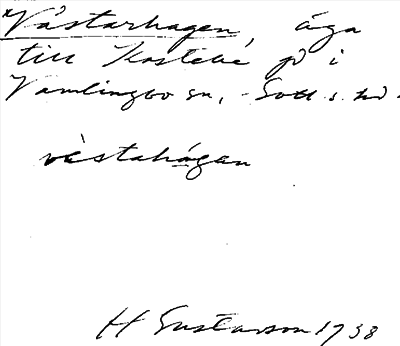 *Västarhagen, äga
till Kastebé på i
Vamlingbo sn, Gotl. s. hd.
västahágen
H Gustavson 1938